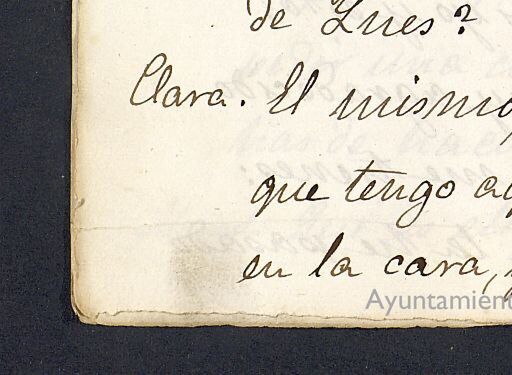 de Lues?
Clara. El mismo,
que tengo aq
en la cara, y
Ayuntamient